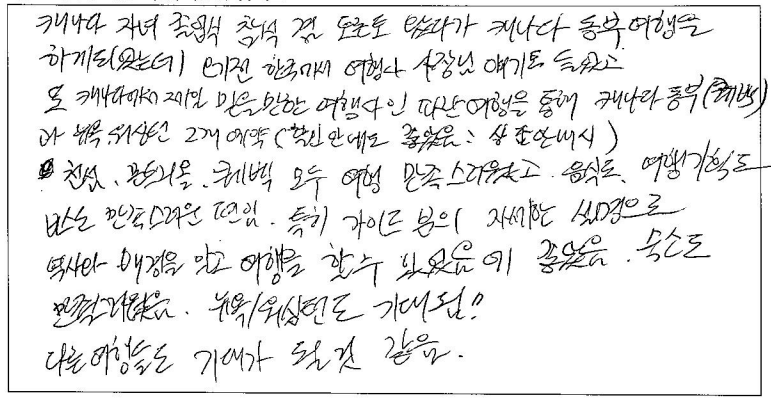 캐나다 자녀 졸업식 참석 겸 토론토 왔다가 캐나다 동부여행을
하게되었는데 예전 한국에서 여행사 사장님 얘기도 들었고
또 캐나다에서 제일 믿을만한 여행사인 파란여행을 통해 캐나다 동부(퀘벡)
과 뉴욕.워싱턴 2개 예약 (확인안에도 좋았음:
천섬. 몬트리올. 퀘벡 모두 여행 만족스러웠고. 음식도. 여행기획도
버스도 만족스러운 편임. 특히 가이드 분의 자세한 설명으로
역사와 배경을 알고 여행을 할수 있었음에 좋았음. 숙소도
만족스러웠음. 뉴욕/워싱턴도 기대됨!!
다른여행들도 기대가 될것 같음.